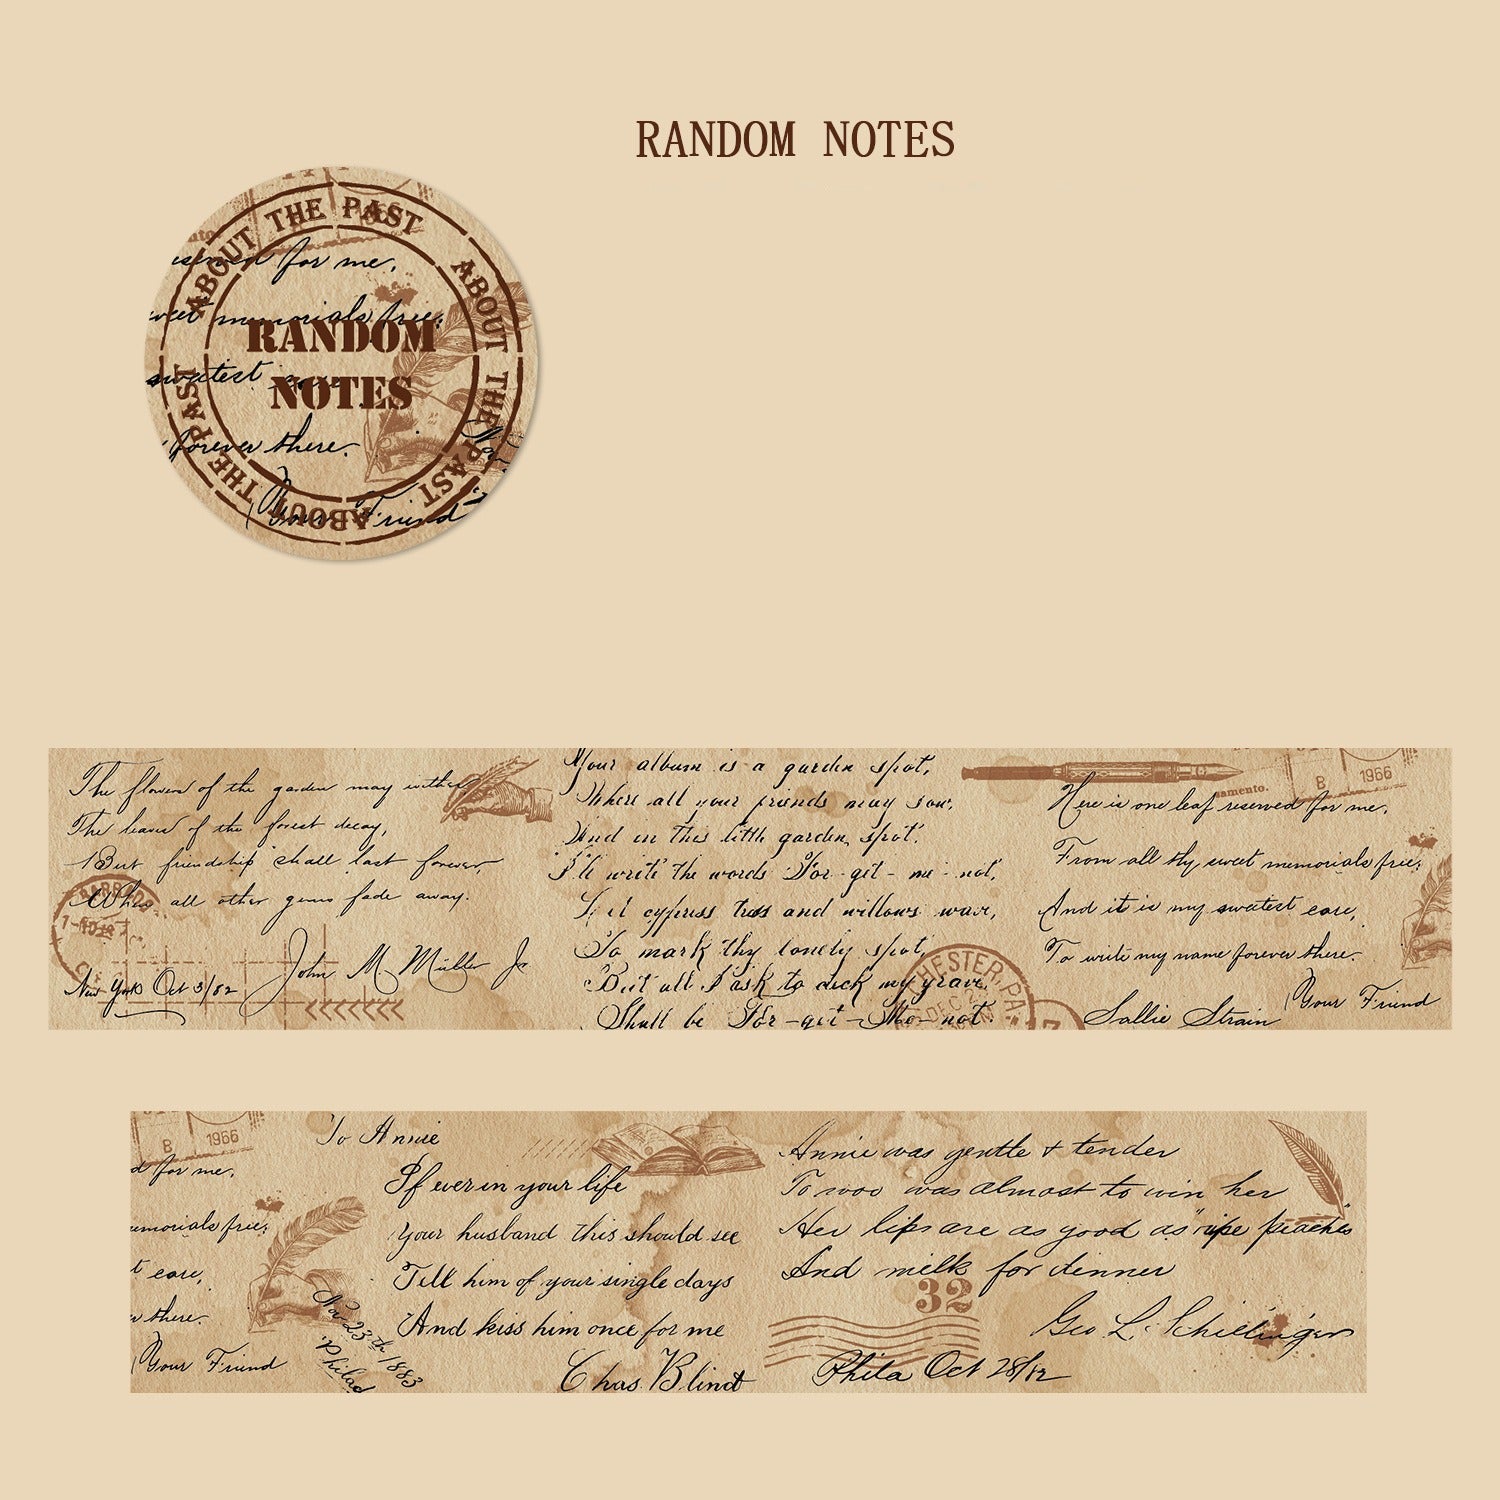 RANDOM NOTES
ABOUT THE PAST ABOUT THE PAST ABOUT THE PAST
for me,
memorials free;
RANDOM
sweetest
NOTES
forever there.
Your Friend
The flowers of the garden may wither
The leaves of the forest decay,
But friendship shall last forever,
While all other gems fade away.
New York Oct 3/82
John M Muller Jr
Your album is a garden spot,
Where all your friends may sow,
And in this little garden spot,
I'll write the words For-get-me-not,
Let cypress trees and willows wave,
To mark thy lonely spot,
But all I ask to deck my grave
Shall be For-get-Me-not.
CHESTER, PA.
DEC
B
1966
samento.
Here is one leaf reserved for me,
From all thy sweet memorials free;
And it is my sweetest care,
To write my name forever there.
Your Friend
Sallie Strain
B
1966
d for me,
emorials free;
t care,
there.
Your Friend
Nov 23th 1883
Philad
To Annie
If ever in your life
Your husband this should see
Tell him of your single days
And kiss him once for me
Chas. Blind
Annie was gentle & tender
To woo was almost to win her
Her lips are as good as "ripe peaches"
And milk for dinner
32
Geo L. Schillinger
Phila Oct 28/82